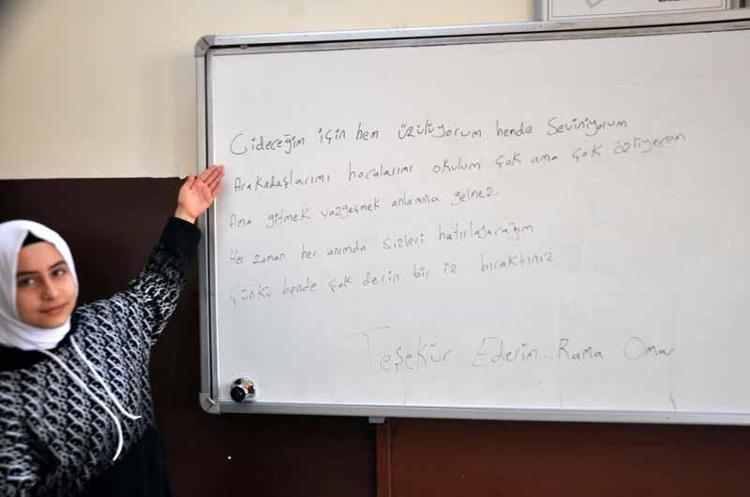 Gideceğim için hem üzülüyorum hende Seviniyorum
Arakadaşlarımı hocalarımı okulum çok ama çok özliyecem
Ama gitmek vazgeşmek anlamına gelmez.
Her zaman her anımda sizleri hatırlayacağım
Çünkü bende çok derin bir iz bıraktınız
Teşekür Ederin... Rama Omar